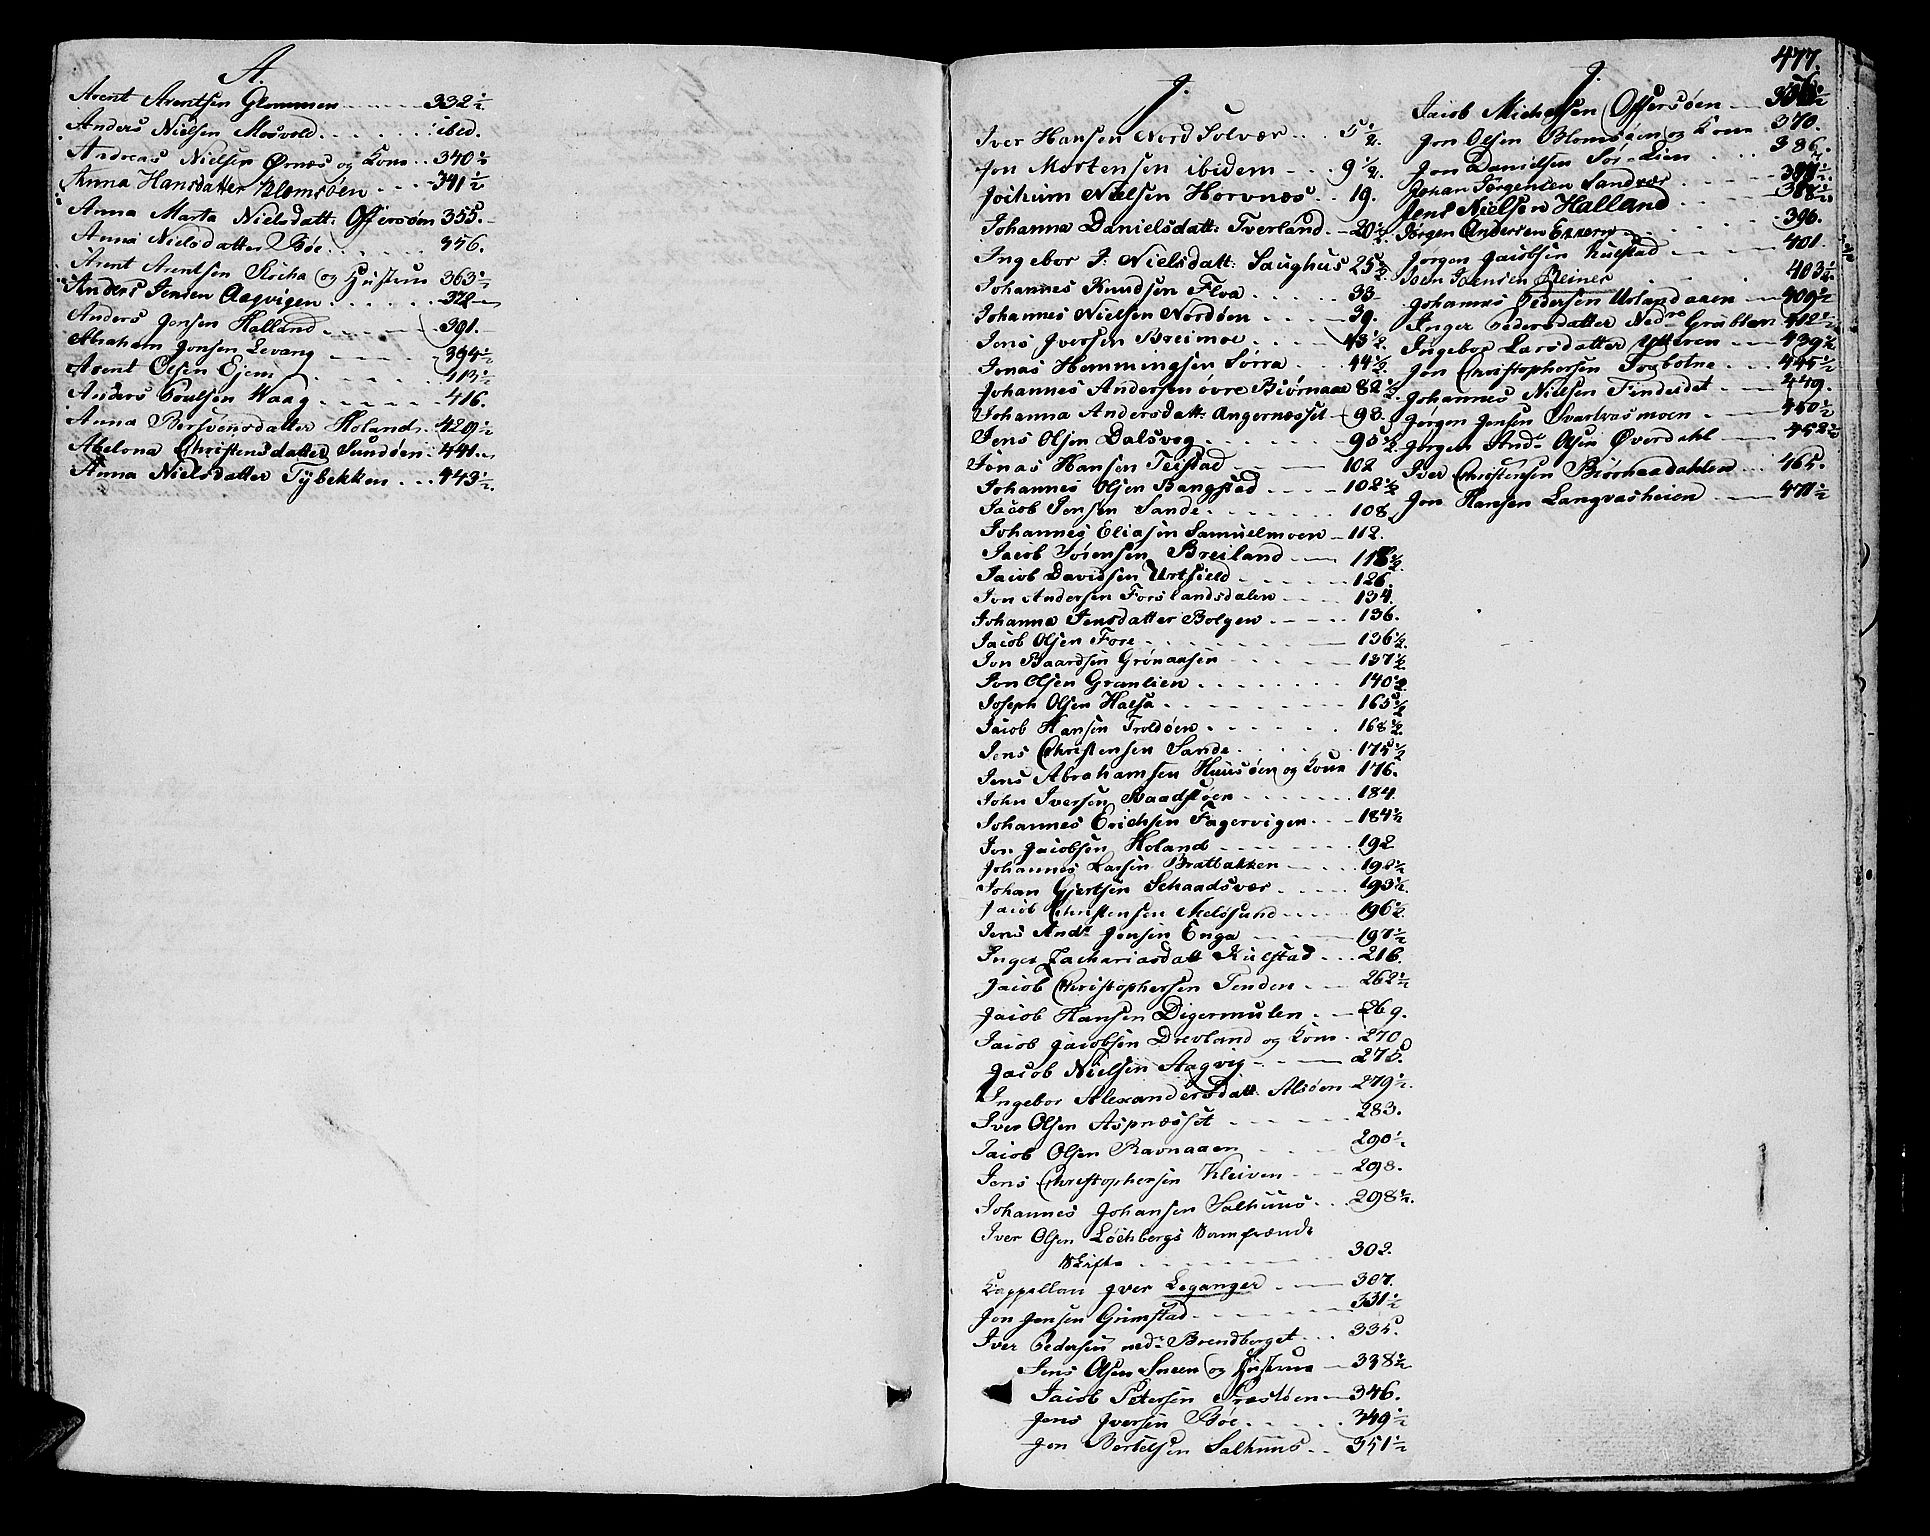 A.
Arent Arentsen Glommen 332½
Anders Nielsen Mosvold ibid.
Andreas Nielsen Ørnæs og Kone 340½
Anna Hansdatter Blomsöen 341½
Anna Marta Nielsdatt: Offersöen 355.
Anna Nielsdatter Böe 356.
Arent Arentsen og Hustrue 363½
Anders Jensen Aagvigen 378
Anders Jonsen Halland 391.
Abraham Jonsen Levang 394½
Arent Olsen Ejem 413½
Anders Poulsen Haag 416.
Anna Bersvensdatter Holand 429½
Abelona Christensdatter Sundöen 441.
Anna Nielsdatter Tybekken 443½
477.
J.
Iver Hansen Nord Solvær 5½
Jon Mortensen ibidem 9½
Jochum Nielsen Horvnæs 19.
Johanna Danielsdatt: Tverland 20½
Ingebor J. Nielsdatt: Saughus 25½
Johannes Knudsen Floa 33
Johannes Nielsen Nordöen 39.
Jens Iversen Breimoe 43½
Jonas Hemmingsen Sörra 44½
Johannes Andersen övre Biörnaae 82½
Johanna Andersdatt: Angernæsset 98.
Jens Olsen Dalsvog 95½
Jonas Hansen Teistad 102
Johannes Olsen Bangstad 102½
Jacob Jensen Sande 108
Johannes Eliasen Samuelmoen 112.
Jacob Sörensen Breiland 118½
Jacob Davidsen Urtfield 126.
Jon Andersen Forslandsdalen 134.
Johanna Jensdatter Bolgen 136.
Jacob Olsen Fore 136½
Jon Baardsen Grönaasen 137½
Jon Olsen Granlien 140½
Joseph Olsen Halsa 165½
Jacob Hansen Troldöen 168½
Jens Christensen Sande 175½
Jens Abrahamsen Huusöen og Kone 176.
John Iversen Baadstöen 184.
Johannes Erichsen Fagervigen 184½
Jon Jacobsen Holand 192
Johannes Larsen Bratbakken 192½
Johan Gjertsen Schaadsvær 193½
Jacob Christensen Melösund 196½
Jens And: Jensen Enga 197½
Inger Zachariasdatt Kulstad 216.
Jacob Christophersen Tenden 262½
Jacob Hansen Digermulen 269.
Jacob Jacobsen Drevland og Kone 270
Jacob Nielsen Aagvig 275.
Ingebor Alexandersdatt: Alsöen 279½
Iver Olsen Aspnæsset 283.
Jacob Olsen Ravnaaen 290½
Jens Christophersen Kleiven 298.
Johannes Johansen Salhuus 298½
Iver Olsen Löchbergs Samfrænde
Skifte 302.
Kappellan Iver Leganger 307.
Jon Jensen Grimstad 331½
Iver Pedersen ned: Brendberget 335.
Jens Olsen Sneen og Hustrue 338½
Jacob Petersen Præstöen 346.
Jens Iversen Böe 349½
Jon Bertelsen Salhuus 351½
J.
Jacob Michelsen Offersöen
Jon Olsen Blomsöen og Kone 370.
Jon Danielsen Sör-Lien 386.
Johan Jörgensen Sandvær
Jens Nielsen Halland 388½
Jörgen Andersen 396.
Jörgen Jacobsen Kulstad 401.
Joen Joensen Kleiner 403½
Johannes Pedersen Urlandaaen 409½
Inger Pedersdatter Nedre Grubben 412½
Ingebor Larsdatter Ytteren 439½
Jon Christophersen Forbotne 445½
Johannes Nielsen Findeidet 449.
Jörgen Jensen Svartvasmoen 450½
Jörgen And: Olsen Överdahl 452½
Iver Christensen Biörnaadahlen 465.
Jon Hansen Langvasheien 471½